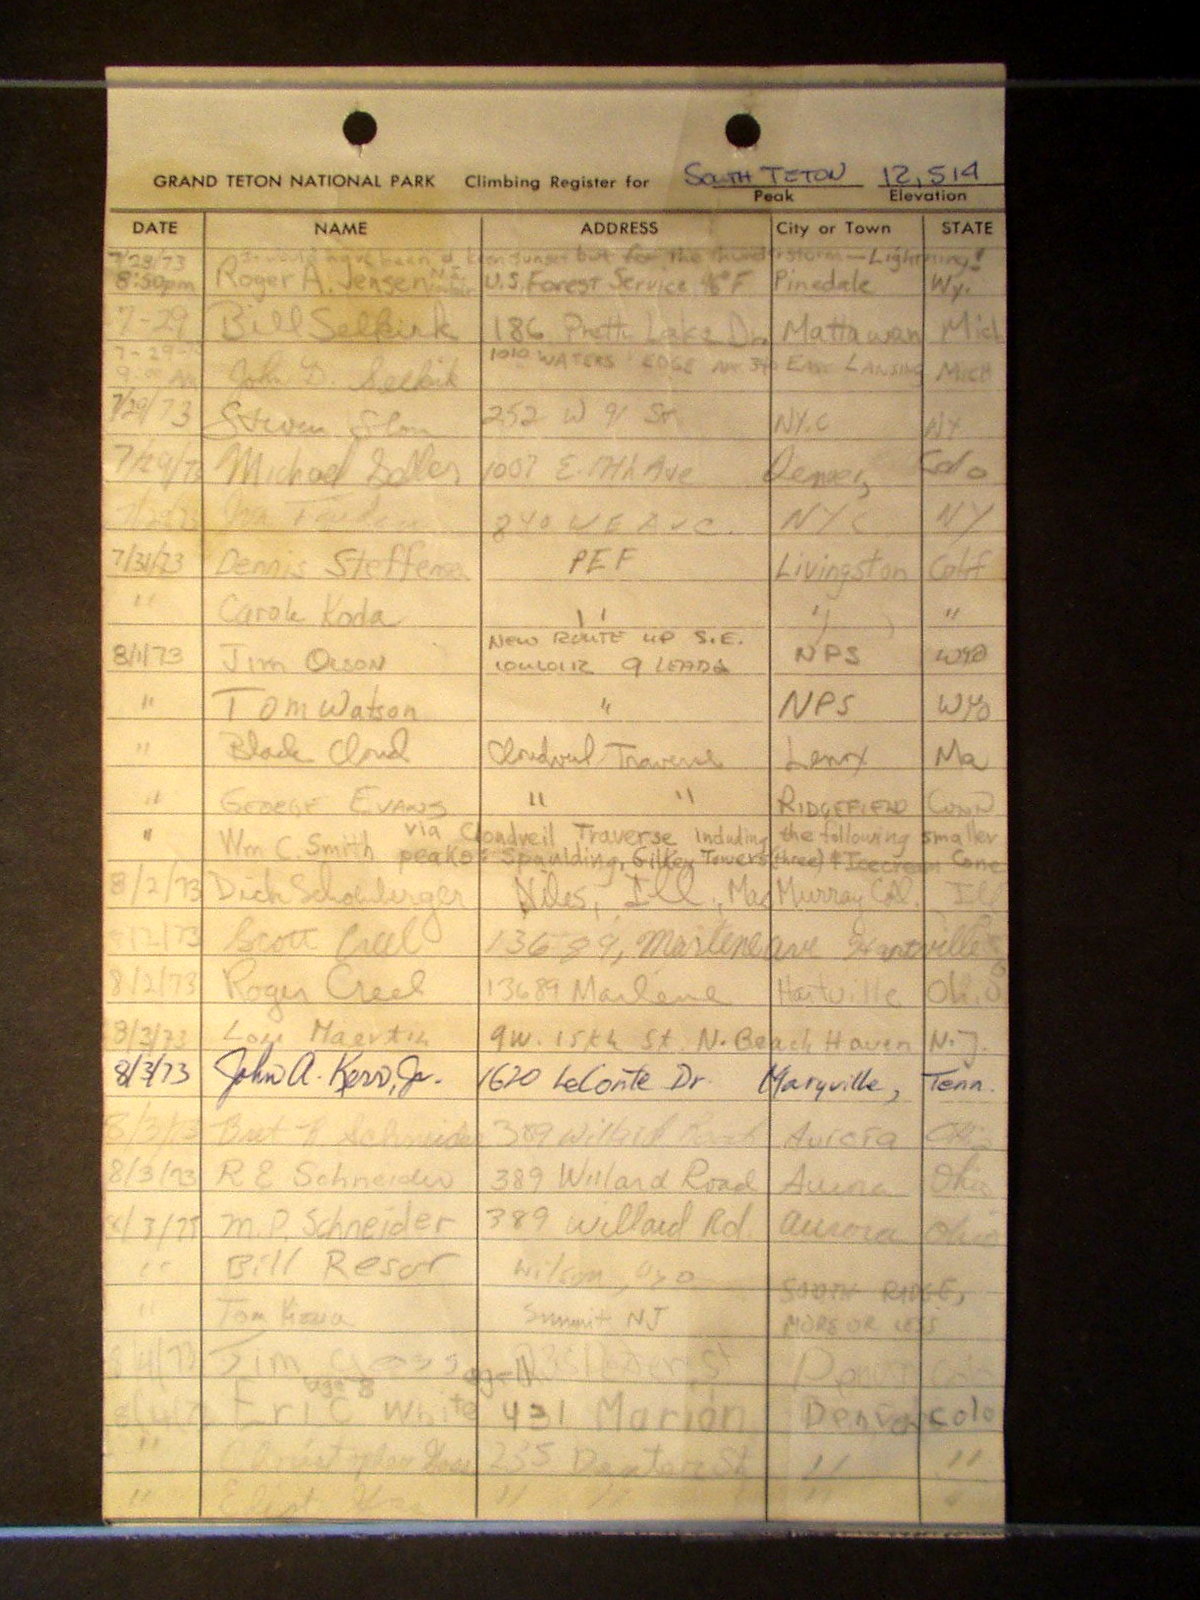 GRAND TETON NATIONAL PARK Climbing Register for SOUTH TETON 12,514
Peak Elevation
DATE NAME ADDRESS City or Town STATE
7/28/73 would have been but for the thunderstorm — Lightning!
8:50pm Roger A. Jensen U.S. Forest Service Pinedale Wy.
7-29 Bill Selkirk 186 Lake Dr. Mattawan Mich
7-29 1010 WATERS EDGE EAST LANSING MICH
9: AM John D. Selkirk
7/29/73 Steven 252 W 91 St. NYC NY
7/29/73 Michael 1007 E. 17th Ave Denver, Colo
840 W E Ave. NYC NY
7/31/73 Dennis Steffensen PEF Livingston Calif
" Carole Koda " " "
NEW ROUTE UP S.E.
8/1/73 Jim OLSON COULOIR 9 LEADS NPS WYO
" Tom Watson " NPS WYO
" Black Cloud Cloudveil Traverse Lenox Ma
" GEORGE EVANS " " RIDGEFIELD CONN
" Wm C. Smith via Cloudveil Traverse including the following smaller
peaks: Spaulding, Gilkey Towers (three) & Icecream Cone
8/2/73 Dick Schoenberger Niles, Ill., MacMurray Col. Ill
8/2/73 Scott Creel 13689, Marlene ave Hartville
8/2/73 Roger Creel 13689 Marlene Hartville Ohio
8/3/73 Lou Maertin 9 W. 15th St N. Beach Haven N.J.
8/3/73 John A. Kerr, Jr. 1620 LeConte Dr. Maryville, Tenn.
8/3/73 Schneider 389 Willard Road Aurora Ohio
8/3/73 R E Schneider 389 Willard Road Aurora Ohio
8/3/73 M.P. Schneider 389 Willard Rd. Aurora Ohio
" Bill Resor Wilson, Wyo SOUTH RIDGE,
" Tom Summit NJ MORE OR LESS
8/4/73 Jim St
age 8
Eric White 431 Marion Denver colo
" 235 St " "
" " " " "